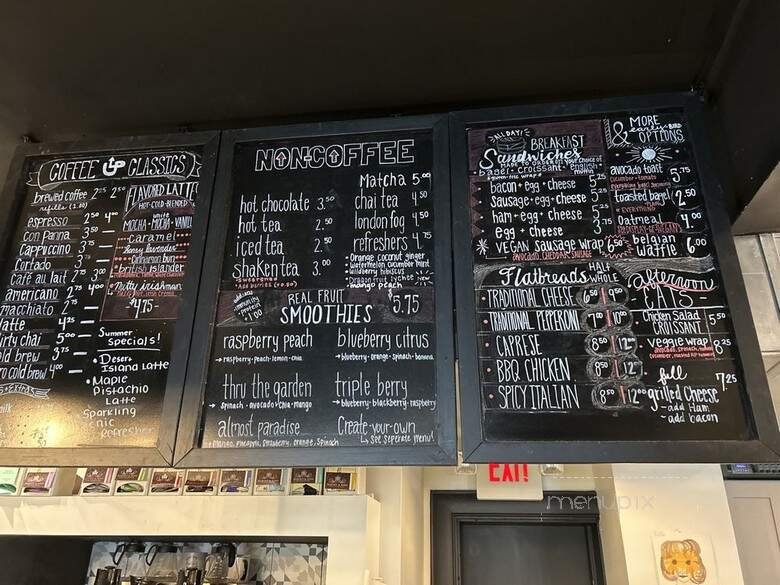 COFFEE UP CLASSICS
brewed coffee 2²⁵ 2⁵⁰
refills (1.00)
espresso 2⁵⁰ 4⁰⁰
con Panna 3
Cappuccino 3⁷⁵
Cortado 3
Café au lait 2⁷⁵
americano 2⁷⁵
macchiato 2⁷⁵
latte 4²⁵
dirty chai 5⁰⁰
cold brew 3⁷⁵
nitro cold brew 4⁰⁰
FLAVORED LATTE
HOT-COLD-BLENDED
white
MOCHA • MOCHA • VANILLA
caramel
honey lavender
Cinnamon bun
british islander
Nutty irishman
$4.75
Summer
Specials!
• Desert
Island Latte
• Maple
Pistachio
Latte
Sparkling
Refresher
NON-COFFEE
Matcha 5.00
hot chocolate 3.50
hot tea 2.50
iced tea 2.50
Shaken tea 3.00
• Sweetened
• Add berries (+0.50)
chai tea 4.50
london fog 4.50
refreshers 4.75
• Orange coconut ginger
• Watermelon cucumber mint
• Wildberry hibiscus
• Dragon fruit lychee New
• mango peach
protein 1.00
REAL FRUIT
SMOOTHIES $5.75
raspberry peach
→ raspberry • peach • lemon • chia
blueberry citrus
→ blueberry • orange • spinach • banana
thru the garden
→ Spinach • avocado • chia • mango
triple berry
→ blueberry • blackberry • raspberry
almost paradise
• Mango, Pineapple, Strawberry, Orange, Spinach
Create-your-own
↳ see seperate menu!
ALL DAY!
BREAKFAST
Sandwiches
MADE TO ORDER w/ your choice of
• bagel • croissant • english muffin
bacon + egg + cheese 5.25
Sausage + egg + cheese 5.75
ham + egg + cheese 5.75
egg + cheese 3.75
VEGAN Sausage Wrap 6.50
avocado, CHEDDAR, SAUSAGE
& MORE
early-BIRD
OPTIONS
avocado toast 5.75
cucumber + tomato
everything bagel seasoning
toasted bagel 2.50
• PLAIN
• EVERYTHING
Oatmeal 4.00
belgian
waffle 6.00
Flatbreads HALF WHOLE
• TRADITIONAL CHEESE 6⁵⁰ 8⁵⁰
• TRADITIONAL PEPPERONI 7⁰⁰ 10⁰⁰
• CAPRESE 8⁵⁰ 12⁰⁰
• BBQ CHICKEN 8⁵⁰ 12⁰⁰
• SPICY ITALIAN 8⁵⁰ 12⁰⁰
afternoon
EATS
Chicken Salad
CROISSANT 5⁵⁰
veggie wrap 8.25
• full
grilled Cheese 7²⁵
- add Ham
- add bacon
EXIT
menupix